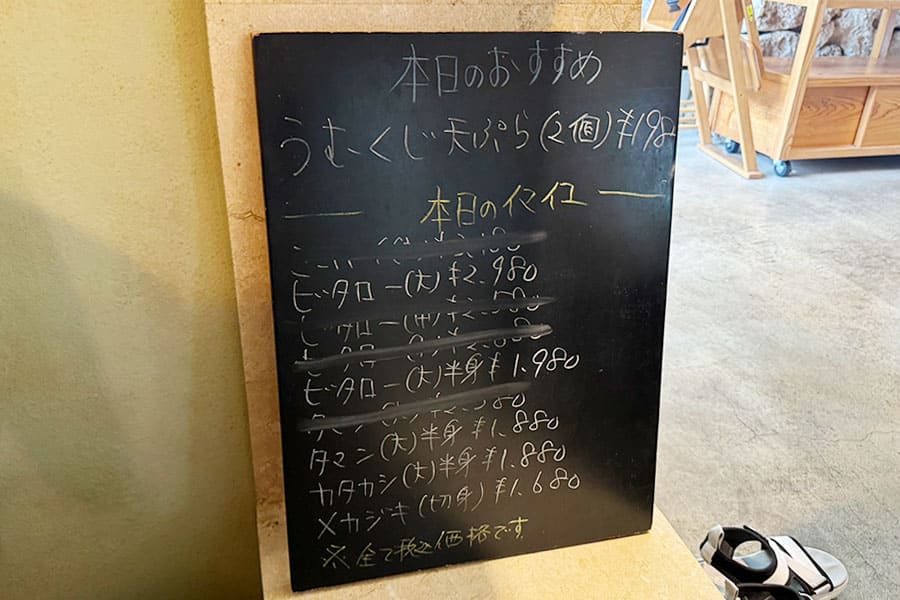 本日のおすすめ
うむくじ天ぷら(2個)¥198
本日のイマイユ
ビタロー(大)¥2.980
ビタロー(大)半身¥1.980
タマン(大)半身¥1.880
カタカシ(大)半身¥1.880
メカジキ(切身)¥1.680
※全て税込価格です